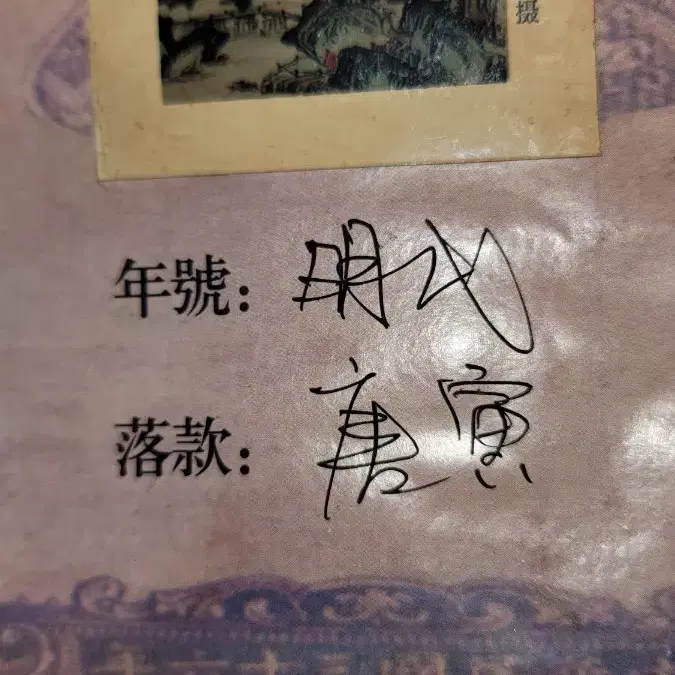 摄
年號：明代
落款：唐寅